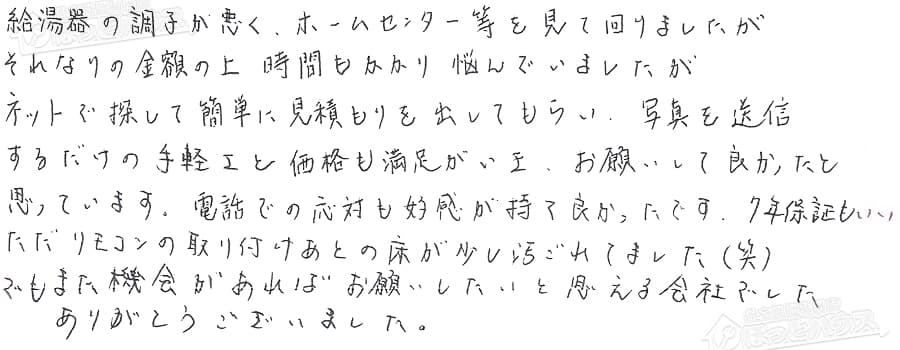 給湯器の調子が悪く、ホームセンター等を見て回りましたが
それなりの金額の上 時間もかかり 悩んでいましたが
ネットで探して簡単に見積もりを出してもらい、写真を送信
するだけの手軽エと価格も満足がいエ、お願いして良かったと
思っています。電話での応対も好感が持て良かったです。7年保証もいい
ただリモコンの取り付けあとの床が少し汚ごれてました(笑)
でもまた機会があればお願いしたいと思える会社でした
ありがとうございました。